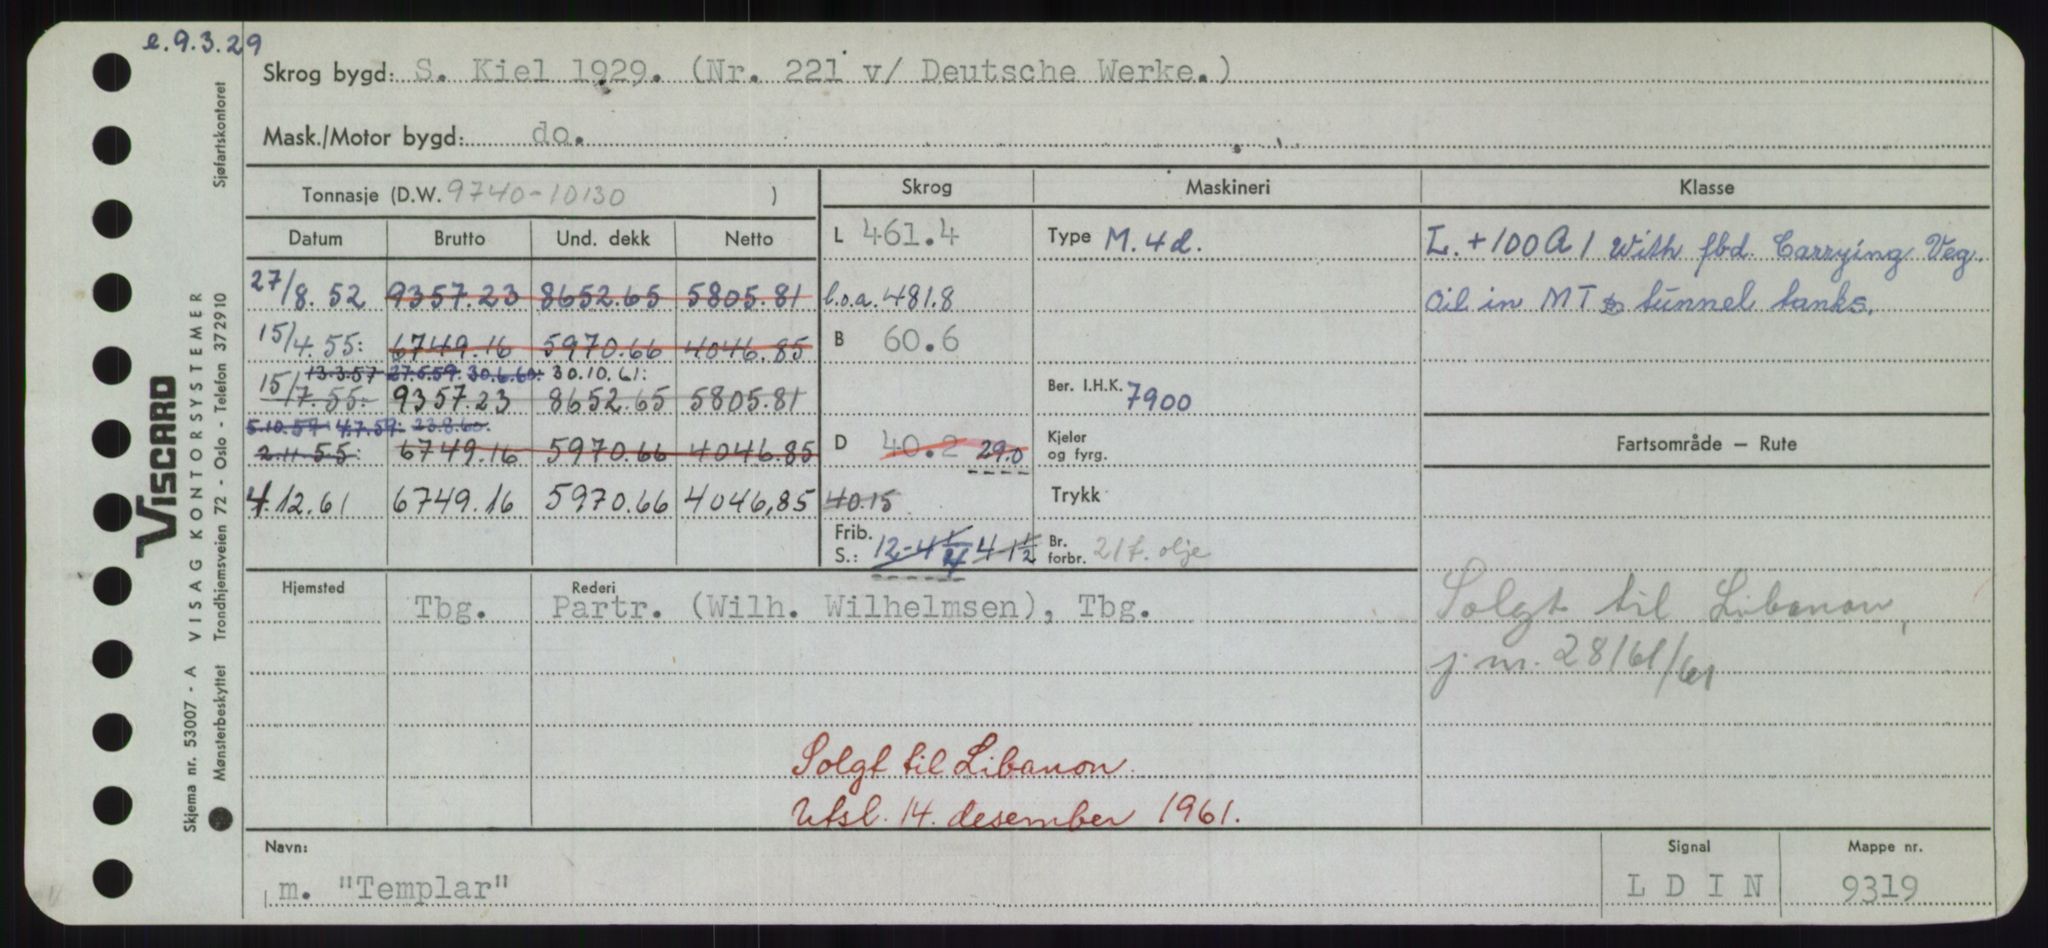 e.9.3.29
Skrog bygd: S. Kiel 1929. (Nr. 221 v/ Deutsche Werke.)
Mask./Motor bygd: do.
Tonnasje (D.W. 9740-10130 )
Skrog Maskineri Klasse
Datum Brutto Und. dekk Netto
L 461.4 Type M. 4 d. L. +100 A 1 With fbd. Carrying Veg.
27/8. 52 9357.23 8652.65 5805.81 l.o.a. 481.8 Oil in M T & tunnel tanks.
15/4. 55: 6749.16 5970.66 4046.85 B 60.6
13.3.57 27.5.59. 30.6.60: 30.10.61:
15/7. 55: 9357.23 8652.65 5805.81 Ber. I.H.K. 7900
5.10.57 4.7.59: 23.8.60.
2.11.55: 6749.16 5970.66 4046.85 D 40.2 29.0 Kjeler og fyrg. Fartsområde – Rute
4.12.61 6749.16 5970.66 4046,85 40.15 Trykk
Frib. S.: 12-4 1/4 4 1 1/2 Br. forbr. 21 t. olje
Hjemsted Rederi
Tbg. Partr. (Wilh. Wilhelmsen), Tbg.
Solgt til Libanon,
j. nr. 28161/61
Solgt til Libanon.
Utsl. 14. desember 1961.
Navn: Signal Mappe nr.
m. "Templar" L D I N 9319
VISCARD
VISAG KONTORSYSTEMER
Skjema nr. 53007 - A
Mønsterbeskyttet Trondhjemsveien 72 - Oslo - Telefon 372910 Sjøfartskontoret